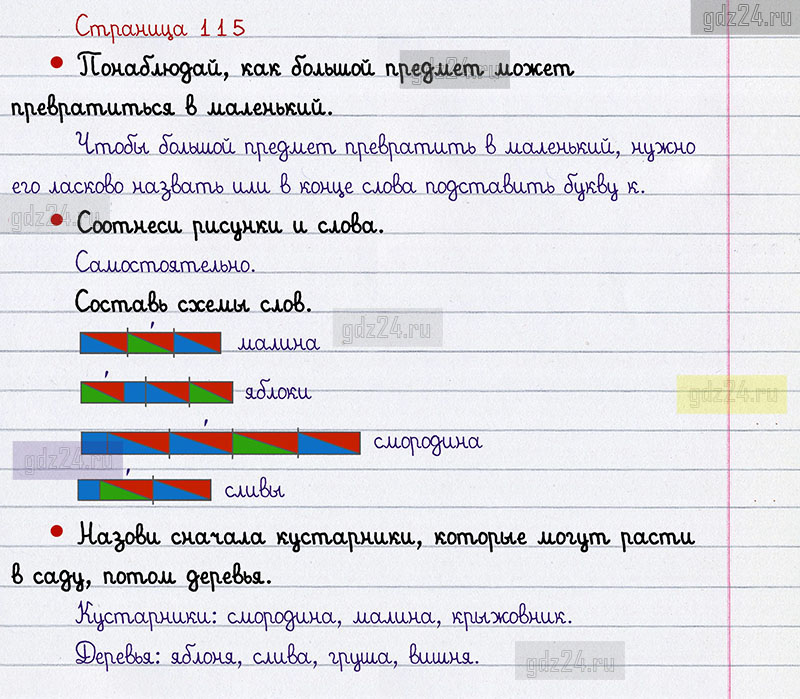 gdz24.ru
Страница 115
• Понаблюдай, как большой предмет может
gdz24.ru
превратиться в маленький.
Чтобы большой предмет превратить в маленький, нужно
его ласково назвать или в конце слова подставить букву к.
gdz24.ru
• Соотнеси рисунки и слова.
Самостоятельно.
Составь схемы слов.
малина
gdz24.ru
яблоки
gdz24.ru
смородина
gdz24.ru
сливы
• Назови сначала кустарники, которые могут расти
в саду, потом деревья.
Кустарники: смородина, малина, крыжовник.
Деревья: яблоня, слива, груша, вишня.
gdz24.ru